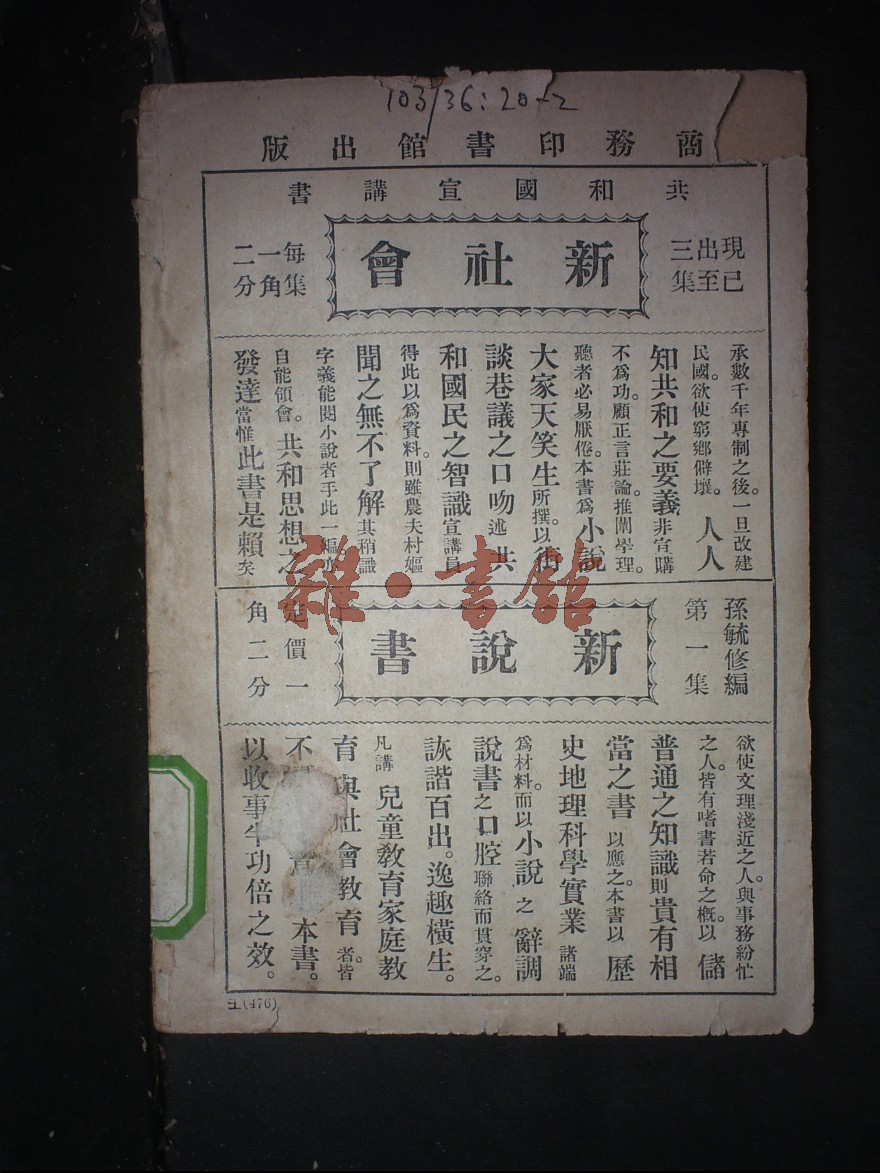 103/36:20-2
商務印書館出版
共和國宣講書
現已
出至
三集
新社會
每集
一角
二分
承數千年專制之後。一旦改建
民國。欲使窮鄉僻壤。人人
知共和之要義非宣購
不爲功。顧正言莊論。推闡學理。
聽者必易厭倦。本書爲小說
大家天笑生所撰。以街
談巷議之口吻述共
和國民之智識宣講員
得此以爲資料。則雖農夫村嫗
聞之無不了解其稍識
字義能閱小說者手此一編。亦
自能領會。共和思想之
發達當惟此書是賴矣
雜·書館
孫毓修編
第一集
新說書
定價一
角二分
欲使文理淺近之人。與事務紛忙
之人。皆有嗜書若命之概。以儲
普通之知識則貴有相
當之書以應之。本書以歷
史地理科學實業諸端
爲材料。而以小說之辭調
說書之口腔聯絡而貫穿之。
詼諧百出。逸趣橫生。
凡講兒童教育家庭教
育與社會教育者。皆
不本書。
以收事半功倍之效。
(476)